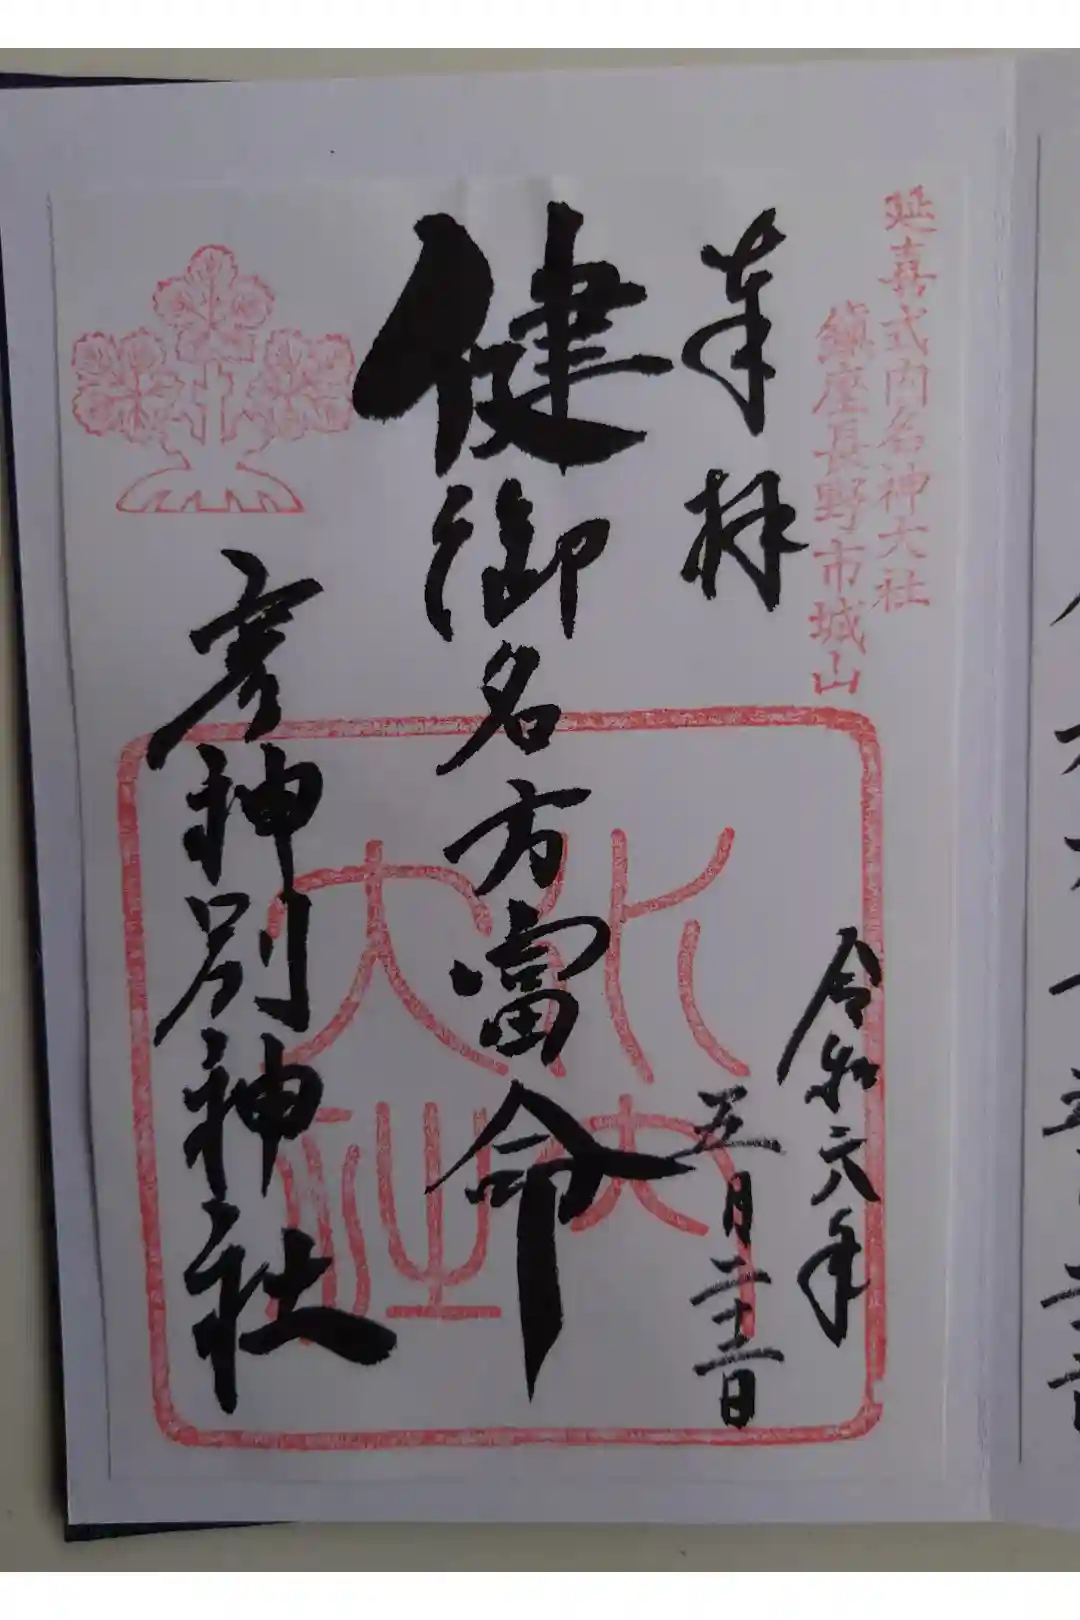 延喜式内名神大社
鎮座長野市城山
奉拝
令和六年
五月二十二日
健御名方富命
彦神別神社
水内
大社